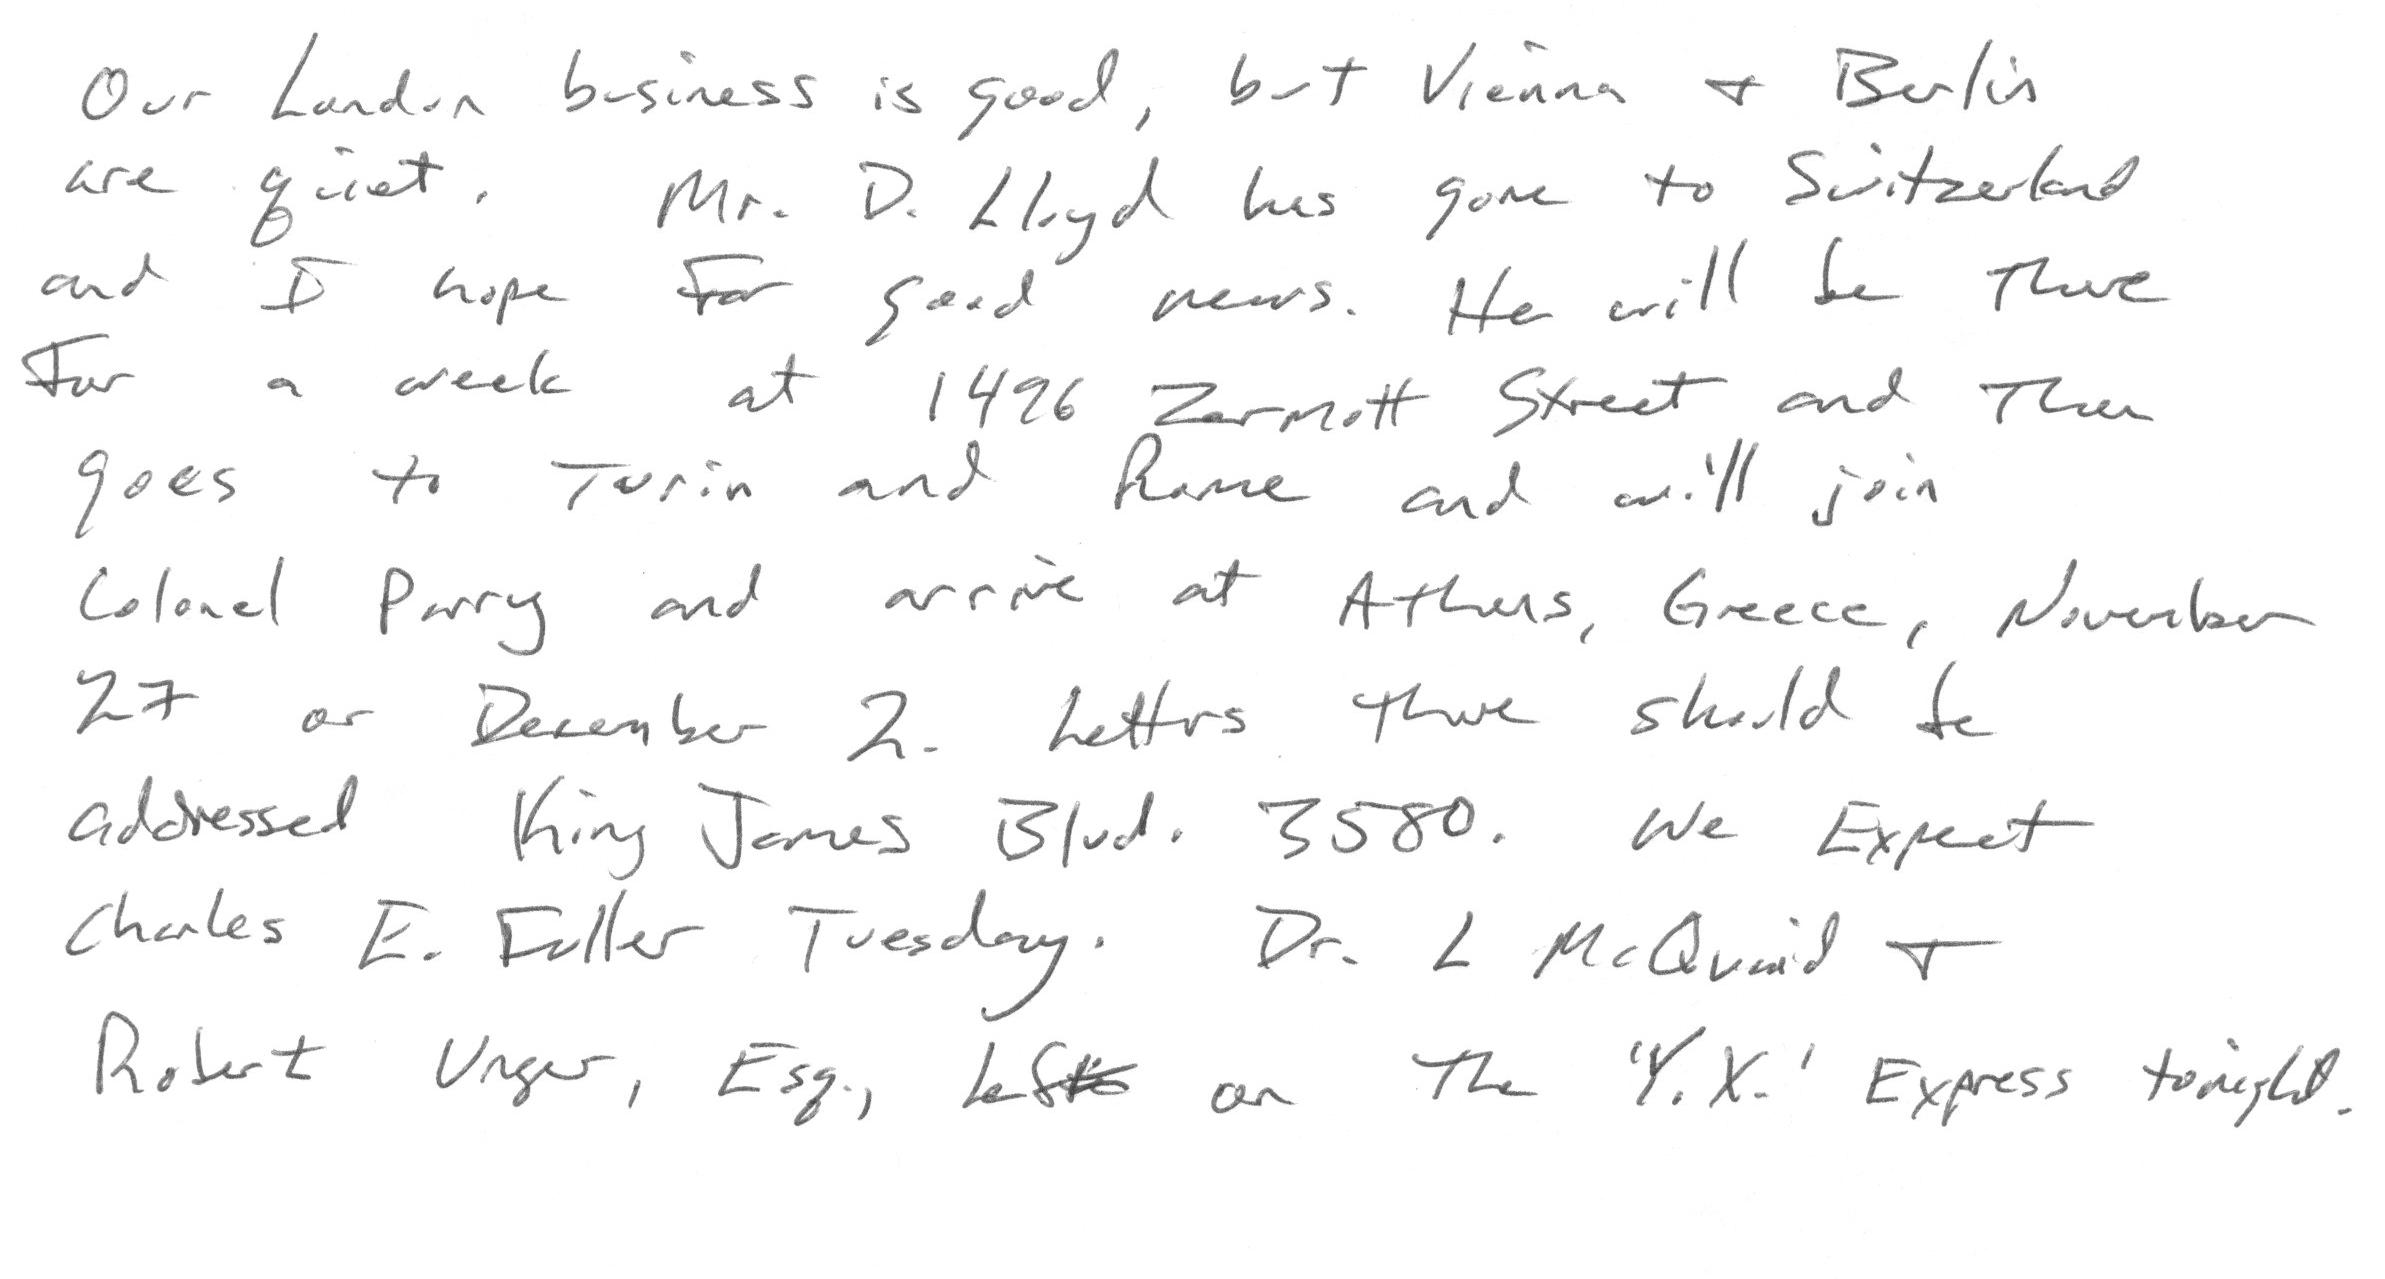 Our London business is good, but Vienna + Berlin
are quiet. Mr. D. Lloyd has gone to Switzerland
and I hope for good news. He will be there
for a week at 1496 Zermott Street and then
goes to Turin and Rome and will join
Colonel Parry and arrive at Athens, Greece, November
27 or December 2. Letters there should be
addressed King James Blvd. 3580. We Expect
Charles E. Fuller Tuesday. Dr. L McQuaid +
Robert Unger, Esq., left on the 'Y.X.' Express tonight.